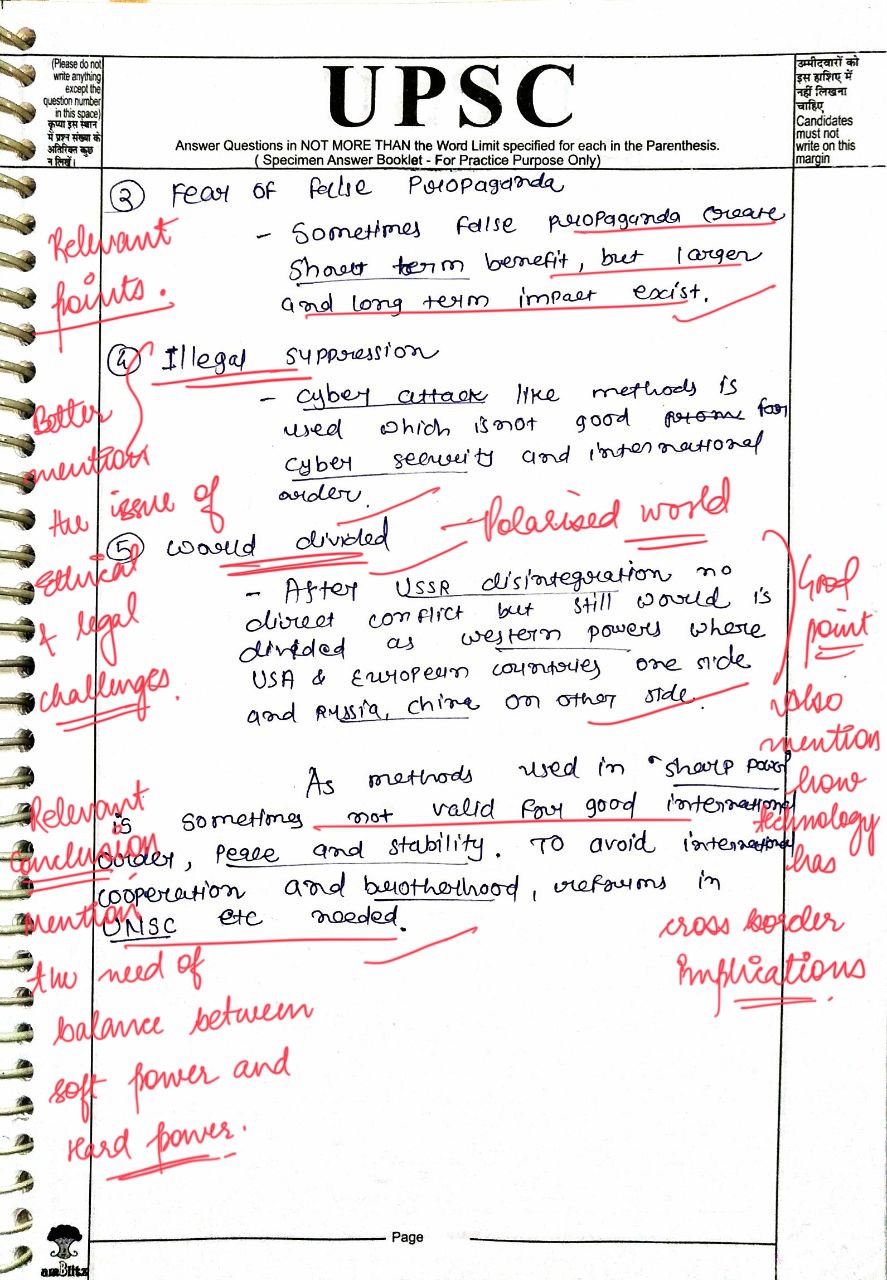 (Please do not
write anything
except the
question number
in this space)
कृप्या इस स्थान
में प्रश्न संख्या के
अतिरिक्त कुछ
न लिखें।
UPSC
Answer Questions in NOT MORE THAN the Word Limit specified for each in the Parenthesis.
( Specimen Answer Booklet - For Practice Purpose Only)
उम्मीदवारों को
इस हाशिए में
नहीं लिखना
चाहिए
Candidates
must not
write on this
margin
③ Fear of false Propaganda
Relevant
points.
- Sometimes false propaganda create
short term benefit, but larger
and long term impact excist.
④ Illegal suppression
- cyber attack like methods is
used which is not good for
cyber security and international
order.
Better
mention
the issue of
Ethical
& legal
challenges.
⑤ World divided
- Polarised world
- After USSR disintegration no
direct conflict but still world is
divided as western powers where
USA & European countries one side
and Russia, china on other side.
Good
point
also
mention
how
technology
has
cross border
implications
As methods used in "sharp power
is sometimes not valid for good international
order, peace and stability. To avoid international
cooperation and brotherhood, reforms in
UNSC etc needed.
Relevant
conclusion
mention
the need of
balance between
soft power and
Hard power.
Page